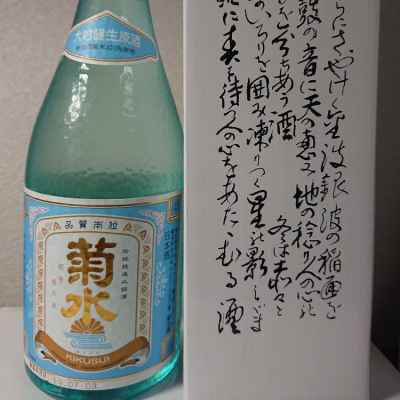 大吟醸生原酒
新潟県産米100%使用
品質本位
菊水
日本酒
KIKUSUI
19.07.09
らにさやけく金波銀波の稲田を
鼓の音に天の恵み地の稔り人の心の
を分ちあう酒
冬は赤々と
いろりを囲み凍りつく星の影
に春を待つ人の心をあたゝむる酒